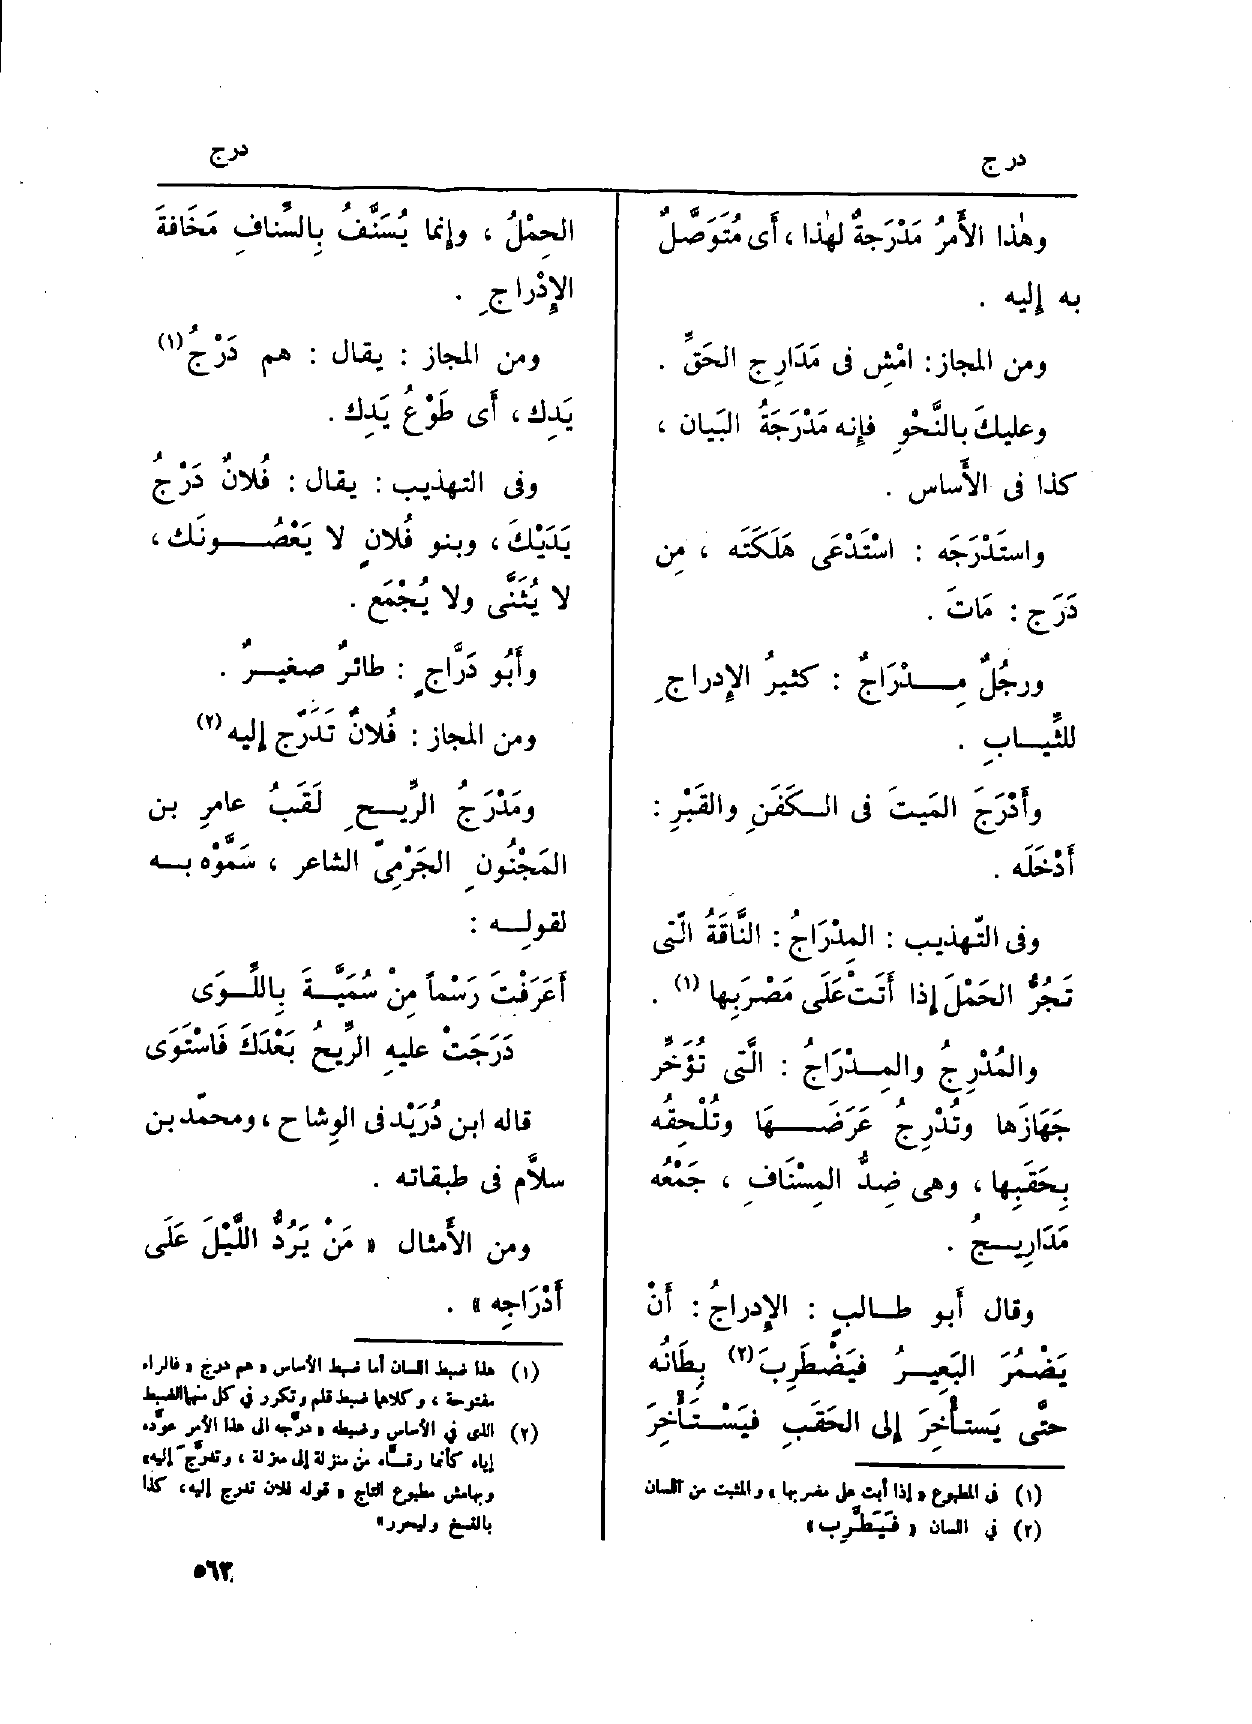 درج
درج
وهٰذا الأَمرُ مَدْرَجةٌ لهٰذا ، أَى مُتَوَصَّلٌ
به إِليه .
ومن المجاز : امْشِ فى مَدَارِجِ الحَقِّ .
وعليكَ بالنَّحْوِ فإِنه مَدْرَجَةُ البَيان ،
كذا فى الأَساس .
واستَدْرَجَه : اسْتَدْعَى هَلَكَتَه ، مِن
دَرَجَ : مَاتَ .
ورجُلٌ مِـدْرَاجٌ : كثيرُ الإِدراجِ
للثِّيـابِ .
وأَدْرَجَ المَيتَ فى الـكَفَنِ والقَبْرِ :
أَدْخَلَه .
وفى التّهذيب : المِدْرَاجُ : النَّاقَةُ الَّتى
تَجُرُّ الحَمْلَ إِذا أَتَتْ عَلَى مَضْرَبِها (١) .
والمُدْرِجُ والمِـدْرَاجُ : الَّتى تُؤَخِّر
جَهَازَها وتُدْرِجُ عَرَضَـهَا وتُلْحِقُه
بِحَقَبِها ، وهى ضِدُّ المِسْنَافِ ، جَمْعُه
مَدَارِيـجُ .
وقال أَبو طـالبٍ : الإِدراجُ : أَنْ
يَضْمُرَ البَعِيـرُ فيَضْطَرِبَ (٢) بِطَانُه
حتَّى يَستأْخِرَ إِلى الحَقَبِ فيَسْـتَأْخِرَ
(١) فى المطبوع « إذا أبت على مضربها » والمثبت من اللسان
(٢) في اللسان « فَيَتَطَرَّب »
الحِمْلُ ، وإِنما يُسَنَّفُ بالسِّنافِ مَخَافةَ
الإِدْراجِ .
ومن المجاز : يقال : هم دَرْجُ (١)
يَدِك ، أَى طَوْعُ يَدِك .
وفى التهذيب : يقال : فُلانٌ دَرْجُ
يَدَيْكَ ، وبنو فُلانٍ لا يَعْصُـونَك ،
لا يُثَنَّى ولا يُجْمَع .
وأَبُو دَرَّاجٍ : طائرٌ صغيـرٌ .
ومن المجاز : فُلانٌ تَدَرَّجَ إِليه (٢)
ومَدْرَجُ الرِّيـحِ لَقَبُ عامرِ بن
المَجْنُونِ الجَرْمِىّ الشاعر ، سَمَّوْه بـه
لقولِـه :
أَعَرَفْتَ رَسْماً مِنْ سُمَيَّـةَ بِاللِّـوَى
دَرَجَتْ عليهِ الرِّيحُ بَعْدَكَ فَاسْتَوَى
قاله ابن دُرَيْد فى الوِشاح ، ومحمّد بن
سلاَّم فى طبقاته .
ومن الأَمثال « مَنْ يَرُدُّ اللَّيْلَ عَلَى
أَدْرَاجِه » .
(١) هذا ضبط اللسان أما ضبط الأساس « هم درج » فالراء
مفتوحة ، وكلاهما ضبط قلم وتكرر في كل منهما الضبط
(٢) الذى في الأساس وضبطه « درّجه الى هذا الأمر عوّده
إياه كأنما رقّاه من منزلة إلى منزلة ، وتدرَّج إليه»
وبهامش مطبوع التاج « قوله فلان تدرج إليه، كذا
بالنسخ وليحرر»
٥٦٣